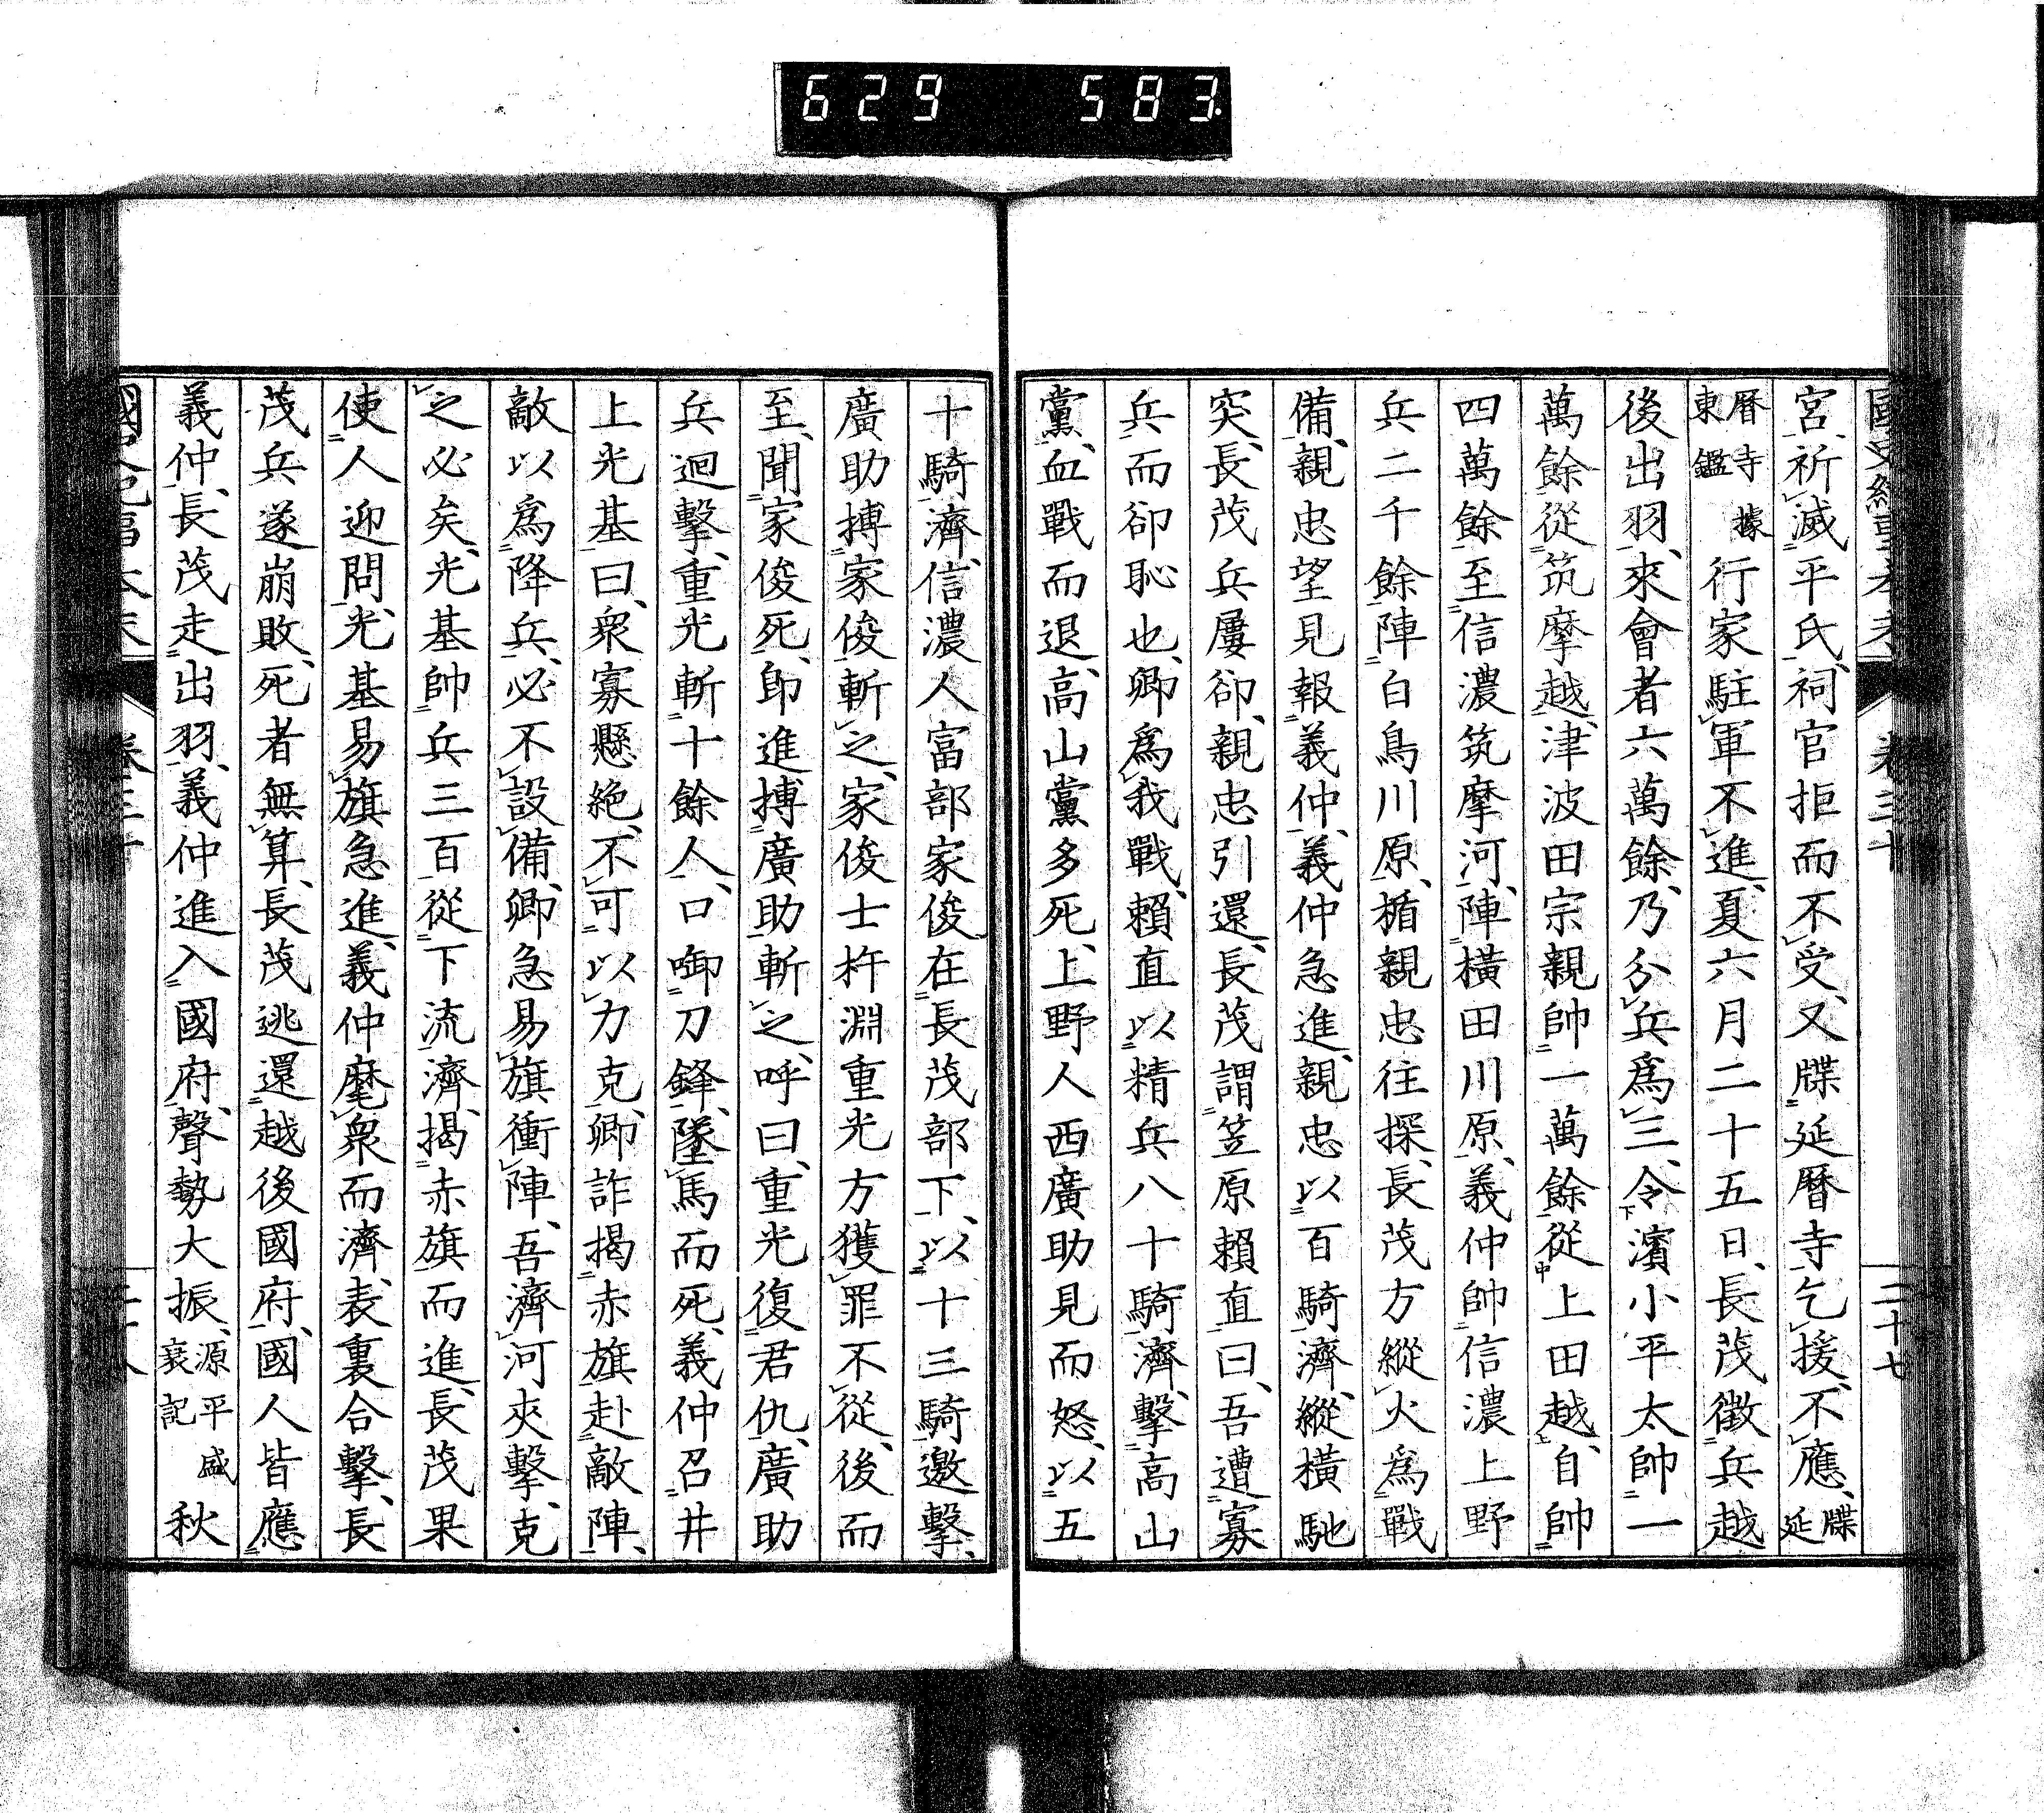 629 583
卷三十
二十七
宮、祈滅平氏、祠官拒而不受、又牒延曆寺乞援、不應、牒延
曆寺據東鑑行家駐軍不進、夏六月二十五日、長茂徵兵越
後出羽、來會者六萬餘、乃分兵爲三、令濱小平太帥一
萬餘從筑摩越、津波田宗親帥一萬餘從上田越、自帥
四萬餘至信濃筑摩河、陣橫田川原、義仲帥信濃上野
兵二千餘陣白鳥川原、楯親忠往探、長茂方縱火爲戰
備、親忠望見報義仲、義仲急進、親忠以百騎濟、縱橫馳
突、長茂兵屢卻、親忠引還、長茂謂笠原賴直曰、吾遭寡
兵而卻恥也、卿爲我戰、賴直以精兵八十騎濟、擊高山
黨、血戰而退、高山黨多死、上野人西廣助見而怒、以五
十騎濟、信濃人富部家俊在長茂部下、以十三騎邀擊、
廣助搏家俊斬之、家俊士杵淵重光方獲罪不從、後而
至、聞家俊死、卽進搏廣助斬之、呼曰、重光復君仇、廣助
兵迴擊、重光斬十餘人、口啣刀鋒、墜馬而死、義仲召井
上光基曰、衆寡懸絶、不可以力克、卿詐揭赤旗赴敵陣、
敵以爲降兵、必不設備、卿急易旗衝陣、吾濟河夾擊、克
之必矣、光基帥兵三百從下流濟、揭赤旗而進、長茂果
使人迎問、光基易旗急進、義仲麾衆而濟、表裏合擊、長
茂兵遂崩敗、死者無算、長茂逃還越後國府、國人皆應
義仲、長茂走出羽、義仲進入國府、聲勢大振、源平盛衰記秋